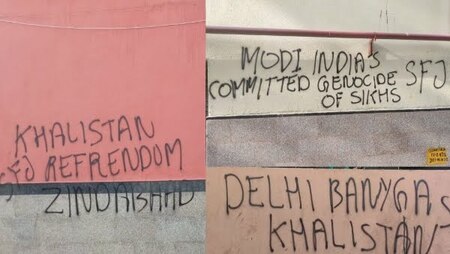 KHALISTAN
SFJ REFRENDOM
ZINDABAAD
MODI INDIA'S
COMMITTED GENOCIDE SFJ
OF SIKHS
DELHI BANYGA
KHALISTAN